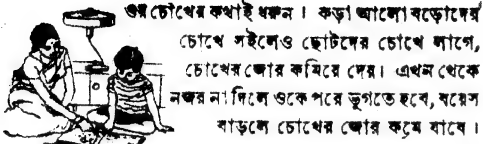 ওর চোখের কথাই ধরুন। কড়া আলো বড়োদের
চোখে সইলেও ছোটদের চোখে লাগে,
চোখের জোর কমিয়ে দেয়। এখন থেকে
নজর না দিলে ওকে পরে ভুগতে হবে, বয়েস
বাড়লে চোখের জোর কমে যাবে।